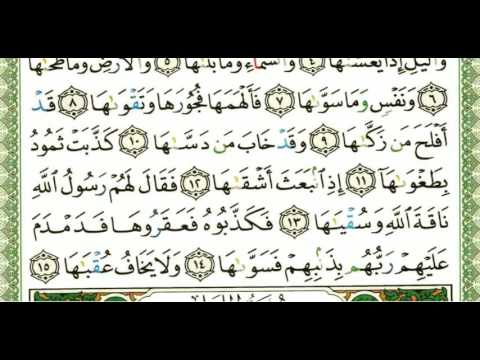 وَٱلَّيۡلِ إِذَا يَغۡشَىٰهَا ٤ وَٱلسَّمَآءِ وَمَا بَنَىٰهَا ٥ وَٱلۡأَرۡضِ وَمَا طَحَىٰهَا
٦ وَنَفۡسٖ وَمَا سَوَّىٰهَا ٧ فَأَلۡهَمَهَا فُجُورَهَا وَتَقۡوَىٰهَا ٨ قَدۡ
أَفۡلَحَ مَن زَكَّىٰهَا ٩ وَقَدۡ خَابَ مَن دَسَّىٰهَا ١٠ كَذَّبَتۡ ثَمُودُ
بِطَغۡوَىٰهَآ ١١ إِذِ ٱنۢبَعَثَ أَشۡقَىٰهَا ١٢ فَقَالَ لَهُمۡ رَسُولُ ٱللَّهِ
نَاقَةَ ٱللَّهِ وَسُقۡيَٰهَا ١٣ فَكَذَّبُوهُ فَعَقَرُوهَا فَدَمۡدَمَ
عَلَيۡهِمۡ رَبُّهُم بِذَنۢبِهِمۡ فَسَوَّىٰهَا ١٤ وَلَا يَخَافُ عُقۡبَٰهَا ١٥